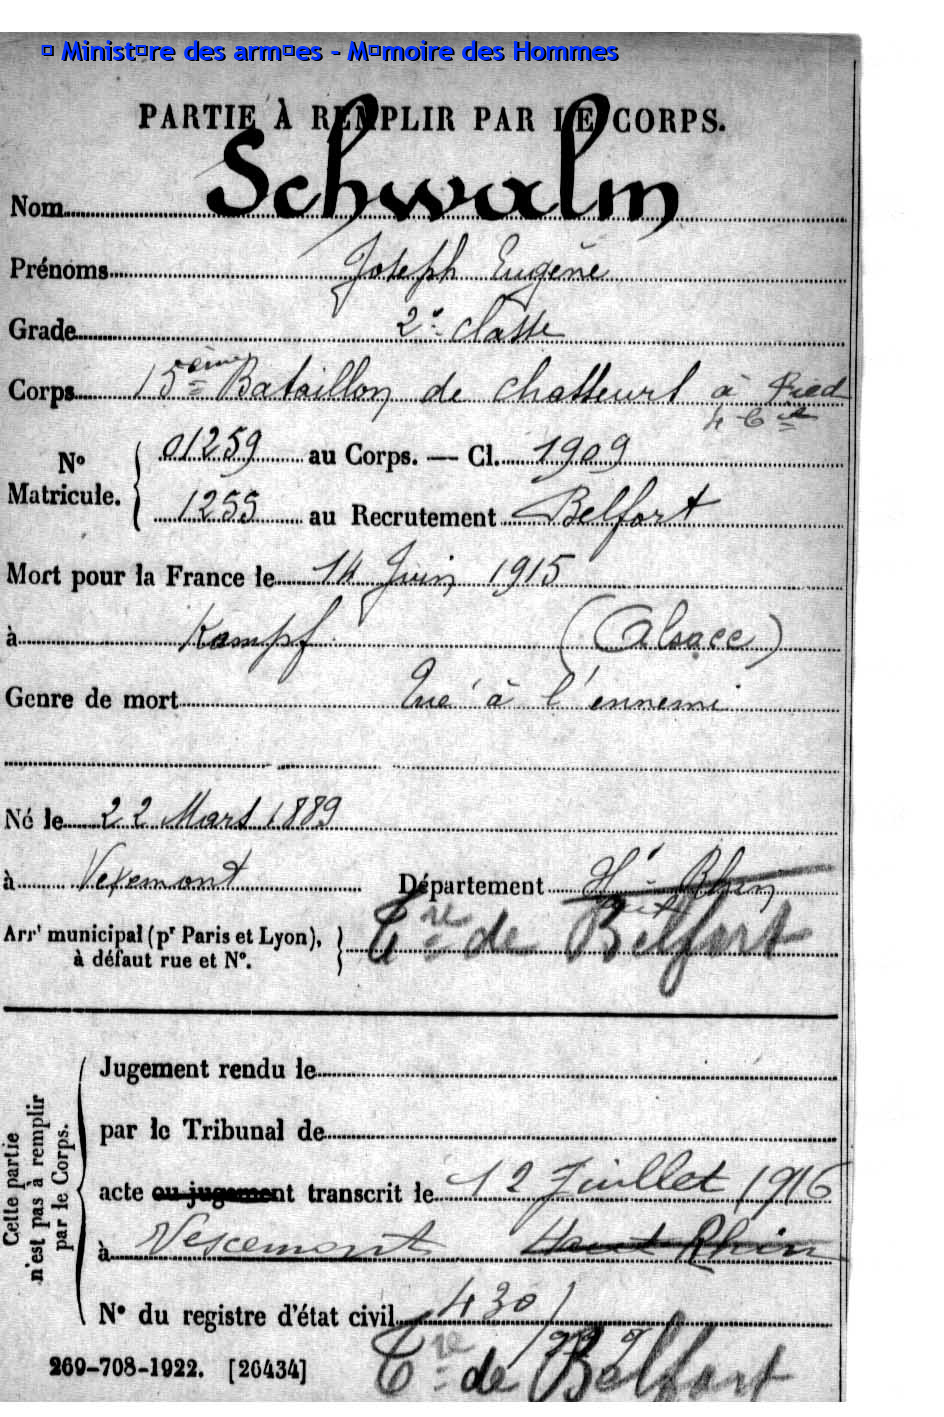 © Ministère des armées - Mémoire des Hommes
PARTIE À REMPLIR PAR LE CORPS.
Nom Schwalm
Prénoms Joseph Eugène
Grade 2e classe
Corps 15ème Bataillon de chasseurs à Pied
4 Cie
No Matricule. 01259 au Corps. — Cl. 1909
1255 au Recrutement Belfort
Mort pour la France le 14 Juin 1915
à Kampf (Alsace)
Genre de mort Tué à l'ennemi
Né le 22 Mars 1889
à Vexemont Département Ht-Rhin
Arrt municipal (pr Paris et Lyon), à défaut rue et No. Tre de Belfort
Cette partie n'est pas à remplir par le Corps.
Jugement rendu le
par le Tribunal de
acte ou jugement transcrit le 12 Juillet 1916
à Vescemont Haut Rhin
No du registre d'état civil 430/
Tre de Belfort
269-708-1922. [26434]